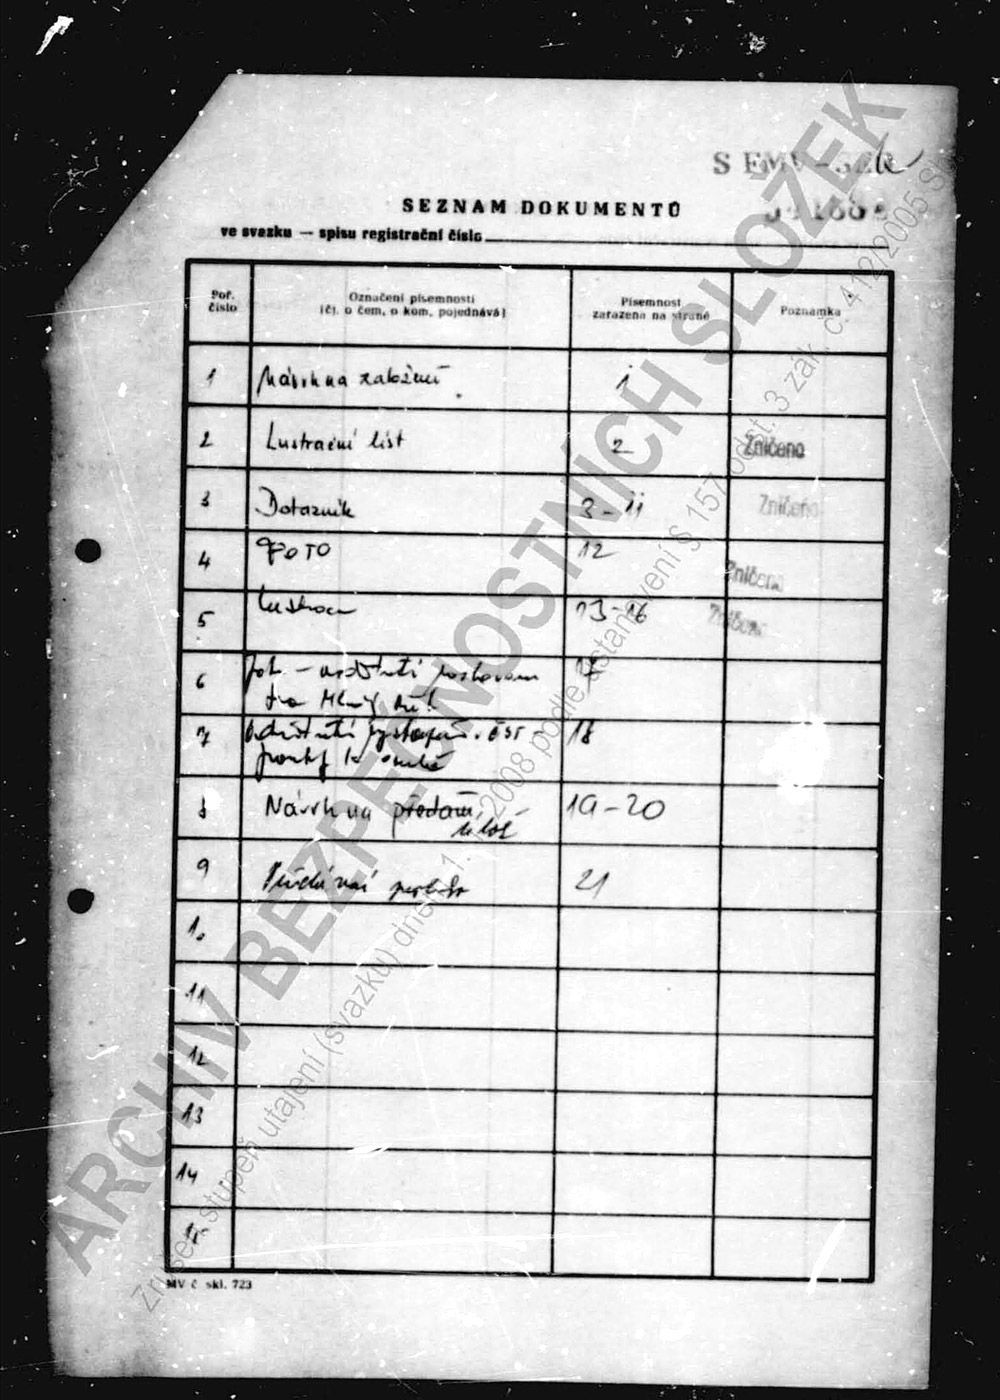 S FMV-SZR
SEZNAM DOKUMENTŮ
ve svazku — spisu registrační číslo
Poř. číslo
Označení písemnosti
(čj. o čem, o kom, pojednává)
Písemnost
zařazena na straně
Poznámka
1 Návrh na založení 1
2 Lustrační list 2 Zničeno
3 Dotazník 3-11 Zničeno
4 FOTO 12 Zničeno
5 13-16 Zničeno
6
7 18
8 Návrh na předání 19-20
9 21
10
11
12
13
14
15
MV č. skl. 723
ARCHIV BEZPEČNOSTNÍCH SLOŽEK
Zrušen stupeň utajení (svazku) dnem 1. 1. 2008 podle ustanovení § 157 odst. 3 zák. č. 412/2005 Sb.